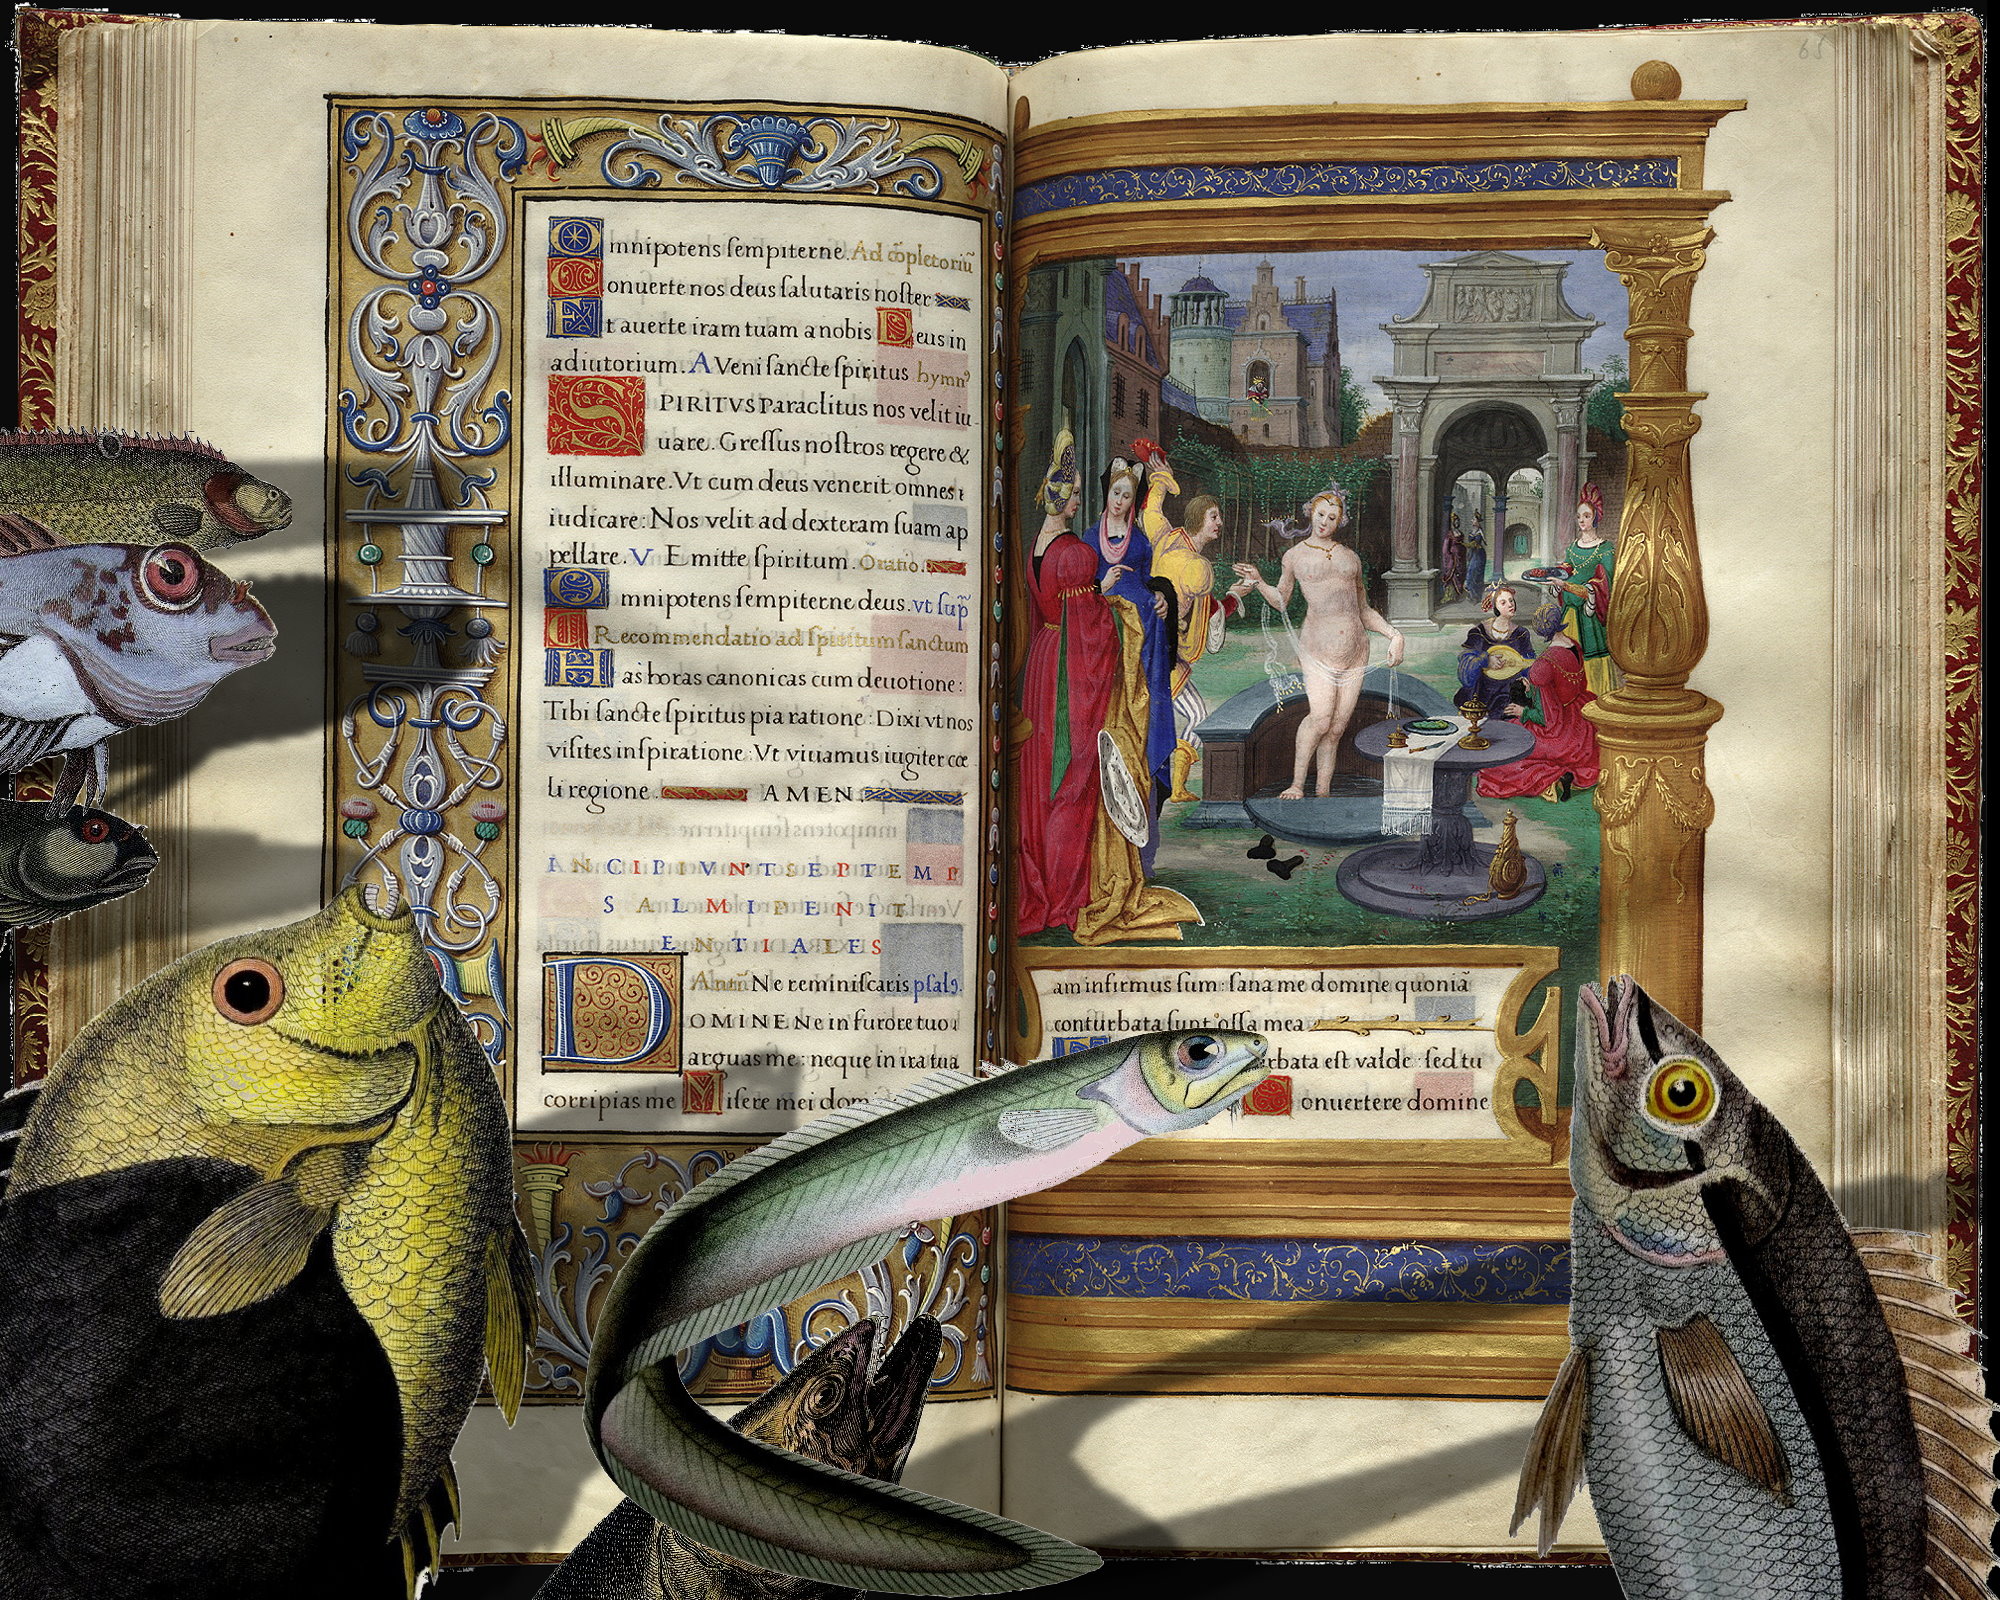 Omnipotens sempiterne. Ad cōpletoriū
Conuerte nos deus salutaris noster
Et auerte iram tuam a nobis Deus in
adiutorium. A Veni sancte spiritus hymnꝰ
SPIRITVS Paraclitus nos velit iu
uare. Gressus nostros regere &
illuminare. Vt cum deus venerit omnes
iudicare: Nos velit ad dexteram suam ap
pellare. V Emitte spiritum. Oratio.
Omnipotens sempiterne deus. vt sup̄
Recommendatio ad spiritum sanctum
Has horas canonicas cum deuotione:
Tibi sancte spiritus pia ratione: Dixi vt nos
visites inspiratione: Vt viuamus iugiter cœ
li regione. AMEN.
INCIPIVNT SEPTEM P
SALMI PENIT
ENTIALES
Antīā Ne reminiscaris psalꝯ.
DOMINE Ne in furore tuo
arguas me: neque in ira tua
corripias me Misere mei dom
am infirmus sum: sana me domine quoniā
conturbata sunt ossa mea
rbata est valde: sed tu
Conuertere domine
65